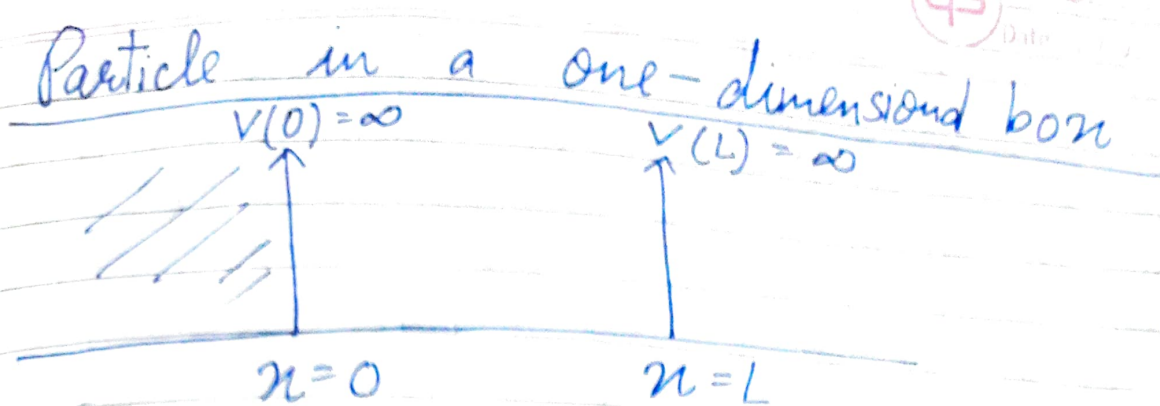 Date
Particle in a one-dimensional box
V(0) = ∞
V(L) = ∞
x = 0
x = L